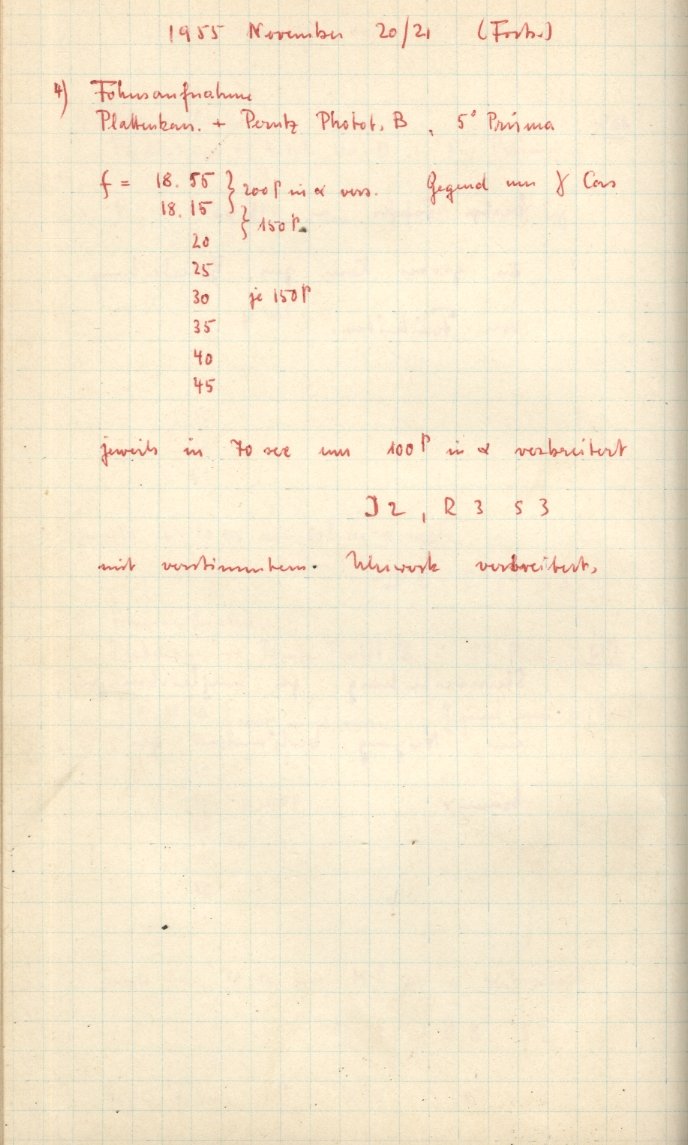 1955 November 20/21 (Forts.)
4) Fokusaufnahme
Plattenkam. + Perutz Photot. B, 5° Prisma
f = 18.55 } 200 P in α vers. Gegend um γ Cas
18.15 } 150 P.
20
25
30 je 150 P
35
40
45
jeweils in 70 sec um 100 P in α verbreitert
J 2, R 3 S 3
mit verstimmtem Uhrwerk verbreitert.